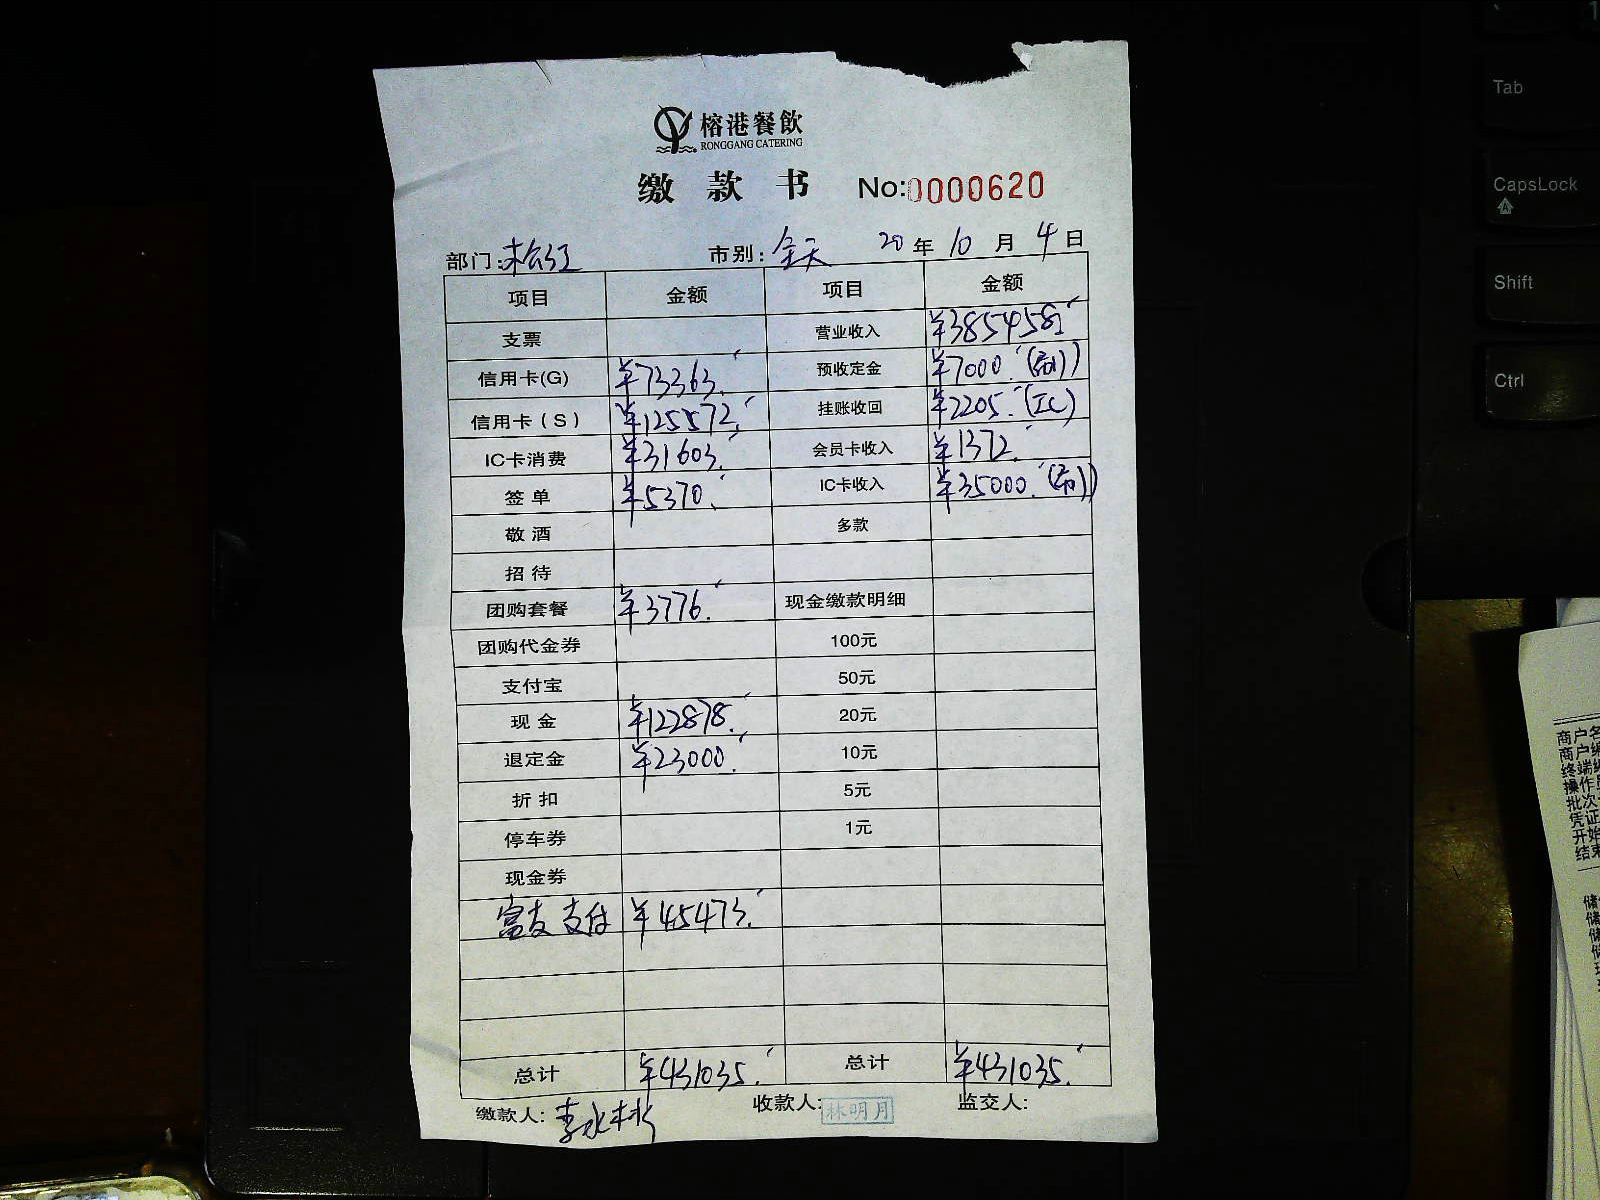 榕港餐飲
RONGGANG CATERING
缴款书 No:0000620
部门:松江 市别:全天 20年10月4日
项目 金额 项目 金额
支票 营业收入 ¥385458.
信用卡(G) ¥73363. 预收定金 ¥7000.(刷)
信用卡(S) ¥125572. 挂账收回 ¥2205.(IC)
IC卡消费 ¥31603. 会员卡收入 ¥1372.
签单 ¥5370. IC卡收入 ¥35000.(刷)
敬酒 多款
招待
团购套餐 ¥3776. 现金缴款明细
团购代金券 100元
支付宝 50元
现金 ¥122878. 20元
退定金 ¥23000. 10元
折扣 5元
停车券 1元
现金券
富友支付 ¥45473.
总计 ¥431035. 总计 ¥431035.
缴款人: 收款人:林明月 监交人:
Tab
CapsLock
Shift
Ctrl